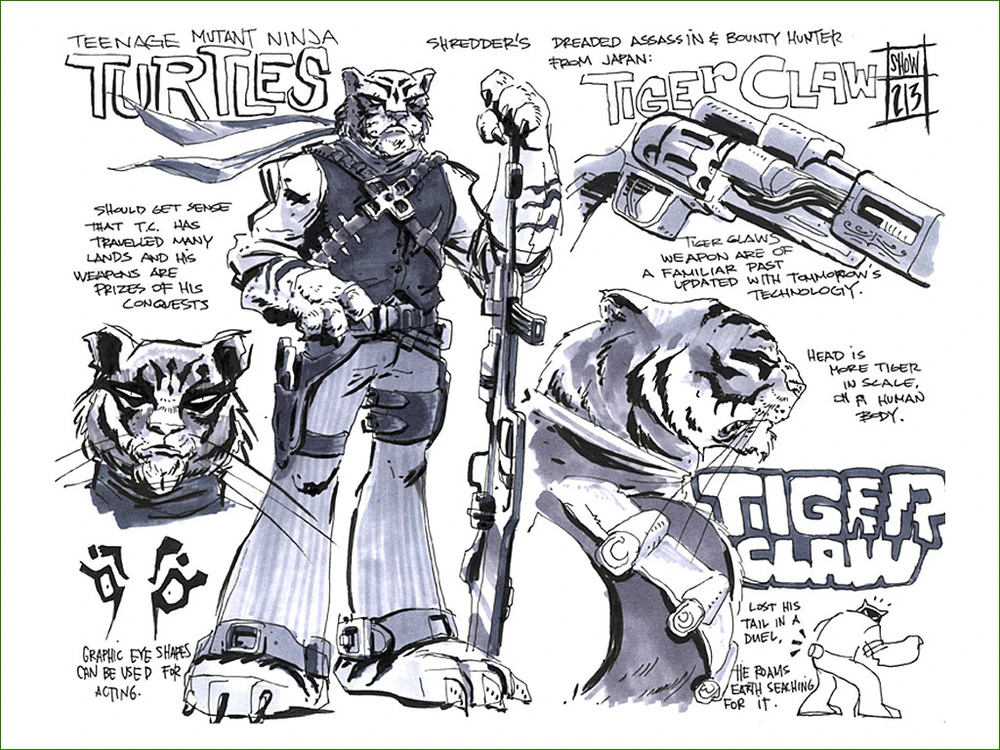 TEENAGE MUTANT NINJA
TURTLES
SHREDDER'S DREADED ASSASSIN & BOUNTY HUNTER
FROM JAPAN:
TIGER CLAW
SHOW
213
SHOULD GET SENSE
THAT T.C. HAS
TRAVELLED MANY
LANDS AND HIS
WEAPONS ARE
PRIZES OF HIS
CONQUESTS
TIGER CLAWS
WEAPON ARE OF
A FAMILIAR PAST
UPDATED WITH TOMMOROW'S
TECHNOLOGY.
HEAD IS
MORE TIGER
IN SCALE,
ON A HUMAN
BODY.
TIGER
CLAW
GRAPHIC EYE SHAPES
CAN BE USED FOR
ACTING.
LOST HIS
TAIL IN A
DUEL,
HE ROAMS
EARTH SEACHING
FOR IT.